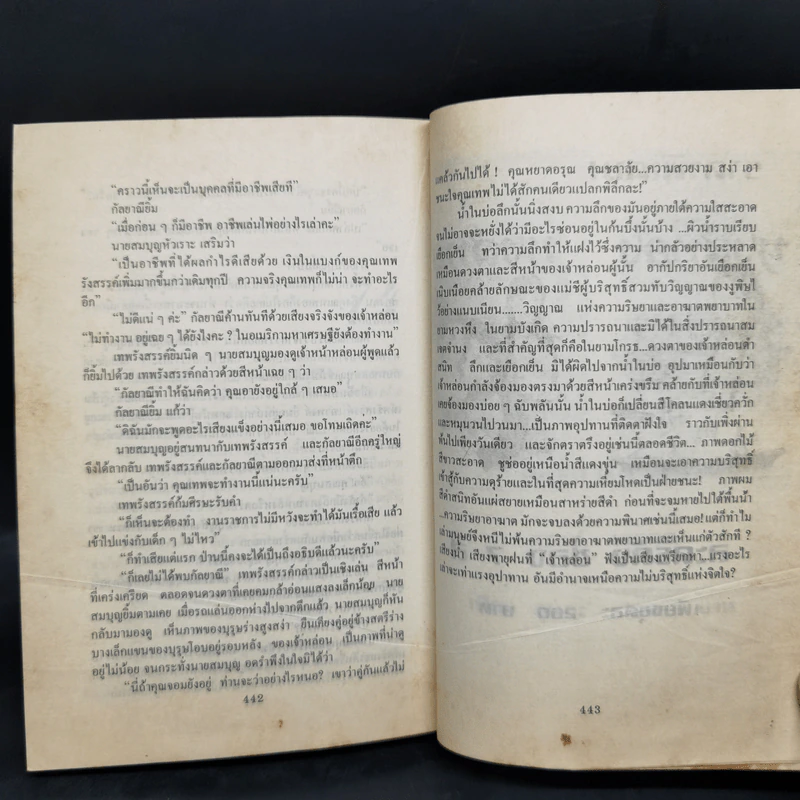 “คราวนี้เห็นจะเป็นบุคคลที่มีอาชีพเสียที”
กัลยาณียิ้ม
“เมื่อก่อน ๆ ก็มีอาชีพ อาชีพเล่นไพ่อย่างไรเล่าคะ”
นายสมบุญหัวเราะ เสริมว่า
“เป็นอาชีพที่ได้ผลกำไรดีเสียด้วย เงินในแบงก์ของคุณเทพ
รังสรรค์เพิ่มมากขึ้นกว่าเดิมทุกปี ความจริงคุณเทพก็ไม่น่า จะทำอะไร
อีก”
“ไม่ดีแน่ ๆ ค่ะ” กัลยาณีค้านทันทีด้วยเสียงจริงจังของเจ้าหล่อน
“ไม่ทำงาน อยู่เฉย ๆ ได้ยังไงคะ ? ในอเมริกามหาเศรษฐียังต้องทำงาน”
เทพรังสรรค์ยิ้มนิด ๆ นายสมบุญมองดูเจ้าหน้าหล่อนผู้พูดแล้ว
ก็ยิ้มไปด้วย เทพรังสรรค์กล่าวด้วยสีหน้าเฉย ๆ ว่า
“กัลยาณีทำให้ฉันคิดว่า คุณอายังอยู่ใกล้ ๆ เสมอ”
กัลยาณียิ้ม แก้ว่า
“ดิฉันมักจะพูดอะไรเสียงแข็งอย่างนี้เสมอ ขอโทษเถิดค่ะ”
นายสมบุญอยู่สนทนากับเทพรังสรรค์ และกัลยาณีอีกครู่ใหญ่
จึงได้ลากลับ เทพรังสรรค์และกัลยาณีตามออกมาส่งที่หน้าตึก
“เป็นอันว่า คุณเทพจะทำงานนี้แน่นะครับ”
เทพรังสรรค์ก้มศีรษะรับคำ
“ก็เห็นจะต้องทำ งานราชการไม่มีหวังจะทำได้มันเรื้อเสีย แล้ว
เข้าไปแข่งกับเด็ก ๆ ไม่ไหว”
“ก็ทำเสียแต่แรก ป่านนี้คงจะได้เป็นถึงอธิบดีแล้วนะครับ”
“ก็เลยไม่ได้พบกัลยาณี” เทพรังสรรค์กล่าวเป็นเชิงเล่น สีหน้า
ที่เคร่งเครียด ตลอดจนดวงตาที่เคยคมกล้าอ่อนแสงลงเล็กน้อย นาย
สมบุญยิ้มตามเคย เมื่อรถแล่นออกห่างไปจากตึกแล้ว นายสมบุญก็หัน
กลับมามองดู เห็นภาพของบุรุษร่างสูงสง่า ยืนเคียงคู่อยู่ข้างสตรีร่าง
บางเล็กแขนของบุรุษโอบอยู่รอบหลัง ของเจ้าหล่อน เป็นภาพที่น่าดู
อยู่ไม่น้อย จนกระทั่งนายสมบุญ อดรำพึงในใจมิได้ว่า
“นี่ถ้าคุณจอมยังอยู่ ท่านจะว่าอย่างไรหนอ? เขาว่าคู่กันแล้วไม่
442
แคล้วกันไปได้ ! คุณหยาดอรุณ คุณชลาลัย...ความสวยงาม สง่า เอา
ชนะใจคุณเทพไม่ได้สักคนเดียวแปลกพิลึกละ!”
น้ำในบ่อลึกนั้นนิ่งสงบ ความลึกของมันอยู่ภายใต้ความใสสะอาด
จนไม่อาจจะหยั่งได้ว่ามีอะไรซ่อนอยู่ในก้นบึ้งนั้นบ้าง ...ผิวน้ำราบเรียบ
เยือกเย็น ทว่าความลึกทำให้แฝงไว้ซึ่งความ น่ากลัวอย่างประหลาด
เหมือนดวงตาและสีหน้าของเจ้าหล่อนผู้นั้น อากัปกริยาอันเยือกเย็น
เนิบเนือยคล้ายลักษณะของแม่ชีผู้บริสุทธิ์สวมทับวิญญาณของงูพิษไว้
ได้อย่างแนบเนียน.......วิญญาณ แห่งความริษยาและอาฆาตพยาบาทใน
ยามหวงหึง ในยามบังเกิด ความปรารถนาและมิได้ในสิ่งปรารถนาสม
เจตจำนง และที่สำคัญที่สุดก็คือในยามโกรธ...ดวงตาของเจ้าหล่อนดำ
สนิท ลึกและเยือกเย็น มิได้ผิดไปจากน้ำในบ่อ อุปมาเหมือนกับว่า
เจ้าหล่อนกำลังจ้องมองตรงมาด้วยสีหน้าเคร่งขรึม คล้ายกับที่เจ้าหล่อน
เคยจ้องมองบ่อย ๆ ฉับพลันนั้น น้ำในบ่อก็เปลี่ยนสีโคลนแดงเชี่ยวควั่ก
และหมุนวนไปวนมา...เป็นภาพอุปทานที่ติดตาฝังใจ ราวกับเพิ่งผ่าน
พ้นไปเพียงวันเดียว และจักตราตรึงอยู่เช่นนี้ตลอดชีวิต... ภาพดอกไม้
สีขาวสะอาด ชูช่ออยู่เหนือน้ำสีแดงขุ่น เหมือนจะเอาความบริสุทธิ์
เข้าสู้กับความดุร้ายและในที่สุดความเหี้ยมโหดเป็นฝ่ายชนะ! ภาพผม
สีดำสนิทอันแผ่สยายเหมือนสาหร่ายสีดำ ก่อนที่จะจมหายไปใต้พื้นน้ำ
...ความริษยาอาฆาต มักจะจบลงด้วยความพินาศเช่นนี้เสมอ! แต่ก็ทำไม
เล่ามนุษย์จึงหนีไม่พ้นความริษยาอาฆาตพยาบาทและเห็นแก่ตัวสักที ?
เสียงน้ำ เสียงพายุฝนที่ “เจ้าหล่อน” ฟังเป็นเสียงเพรียกหา...แรงอะไร
เล่าจะเท่าแรงอุปาทาน อันมีอำนาจเหนือความไม่บริสุทธิ์แห่งจิตใจ?
443